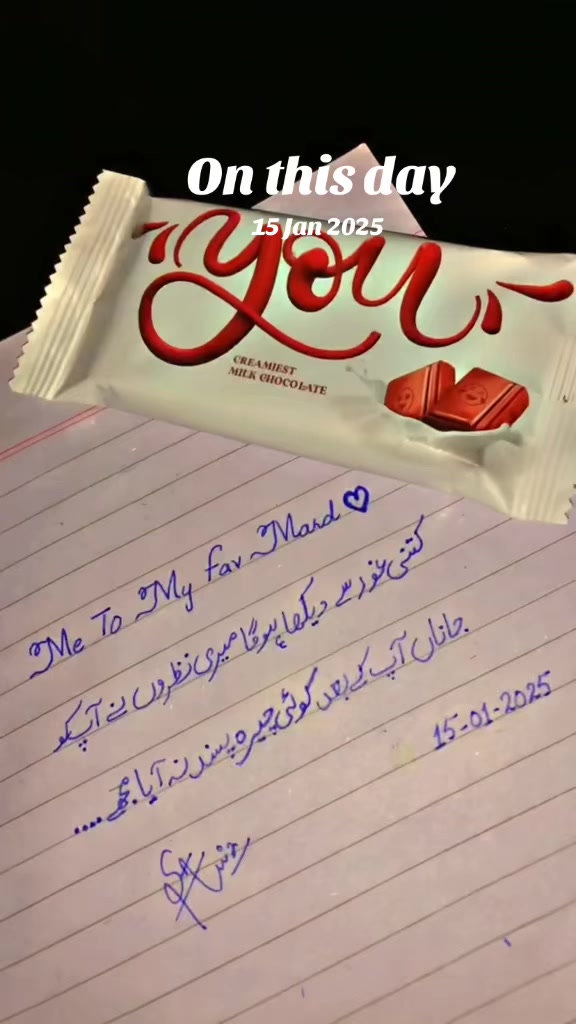 On this day
15 Jan 2025
you
CREAMIEST
MILK CHOCOLATE
Me To My Fav Mard ♡
کتنی غور سے دیکھا ہوگا میری نظروں نے آپ کو
جاناں آپ کے بعد کوئی چہرہ پسند نہ آیا مجھے....
15-01-2025